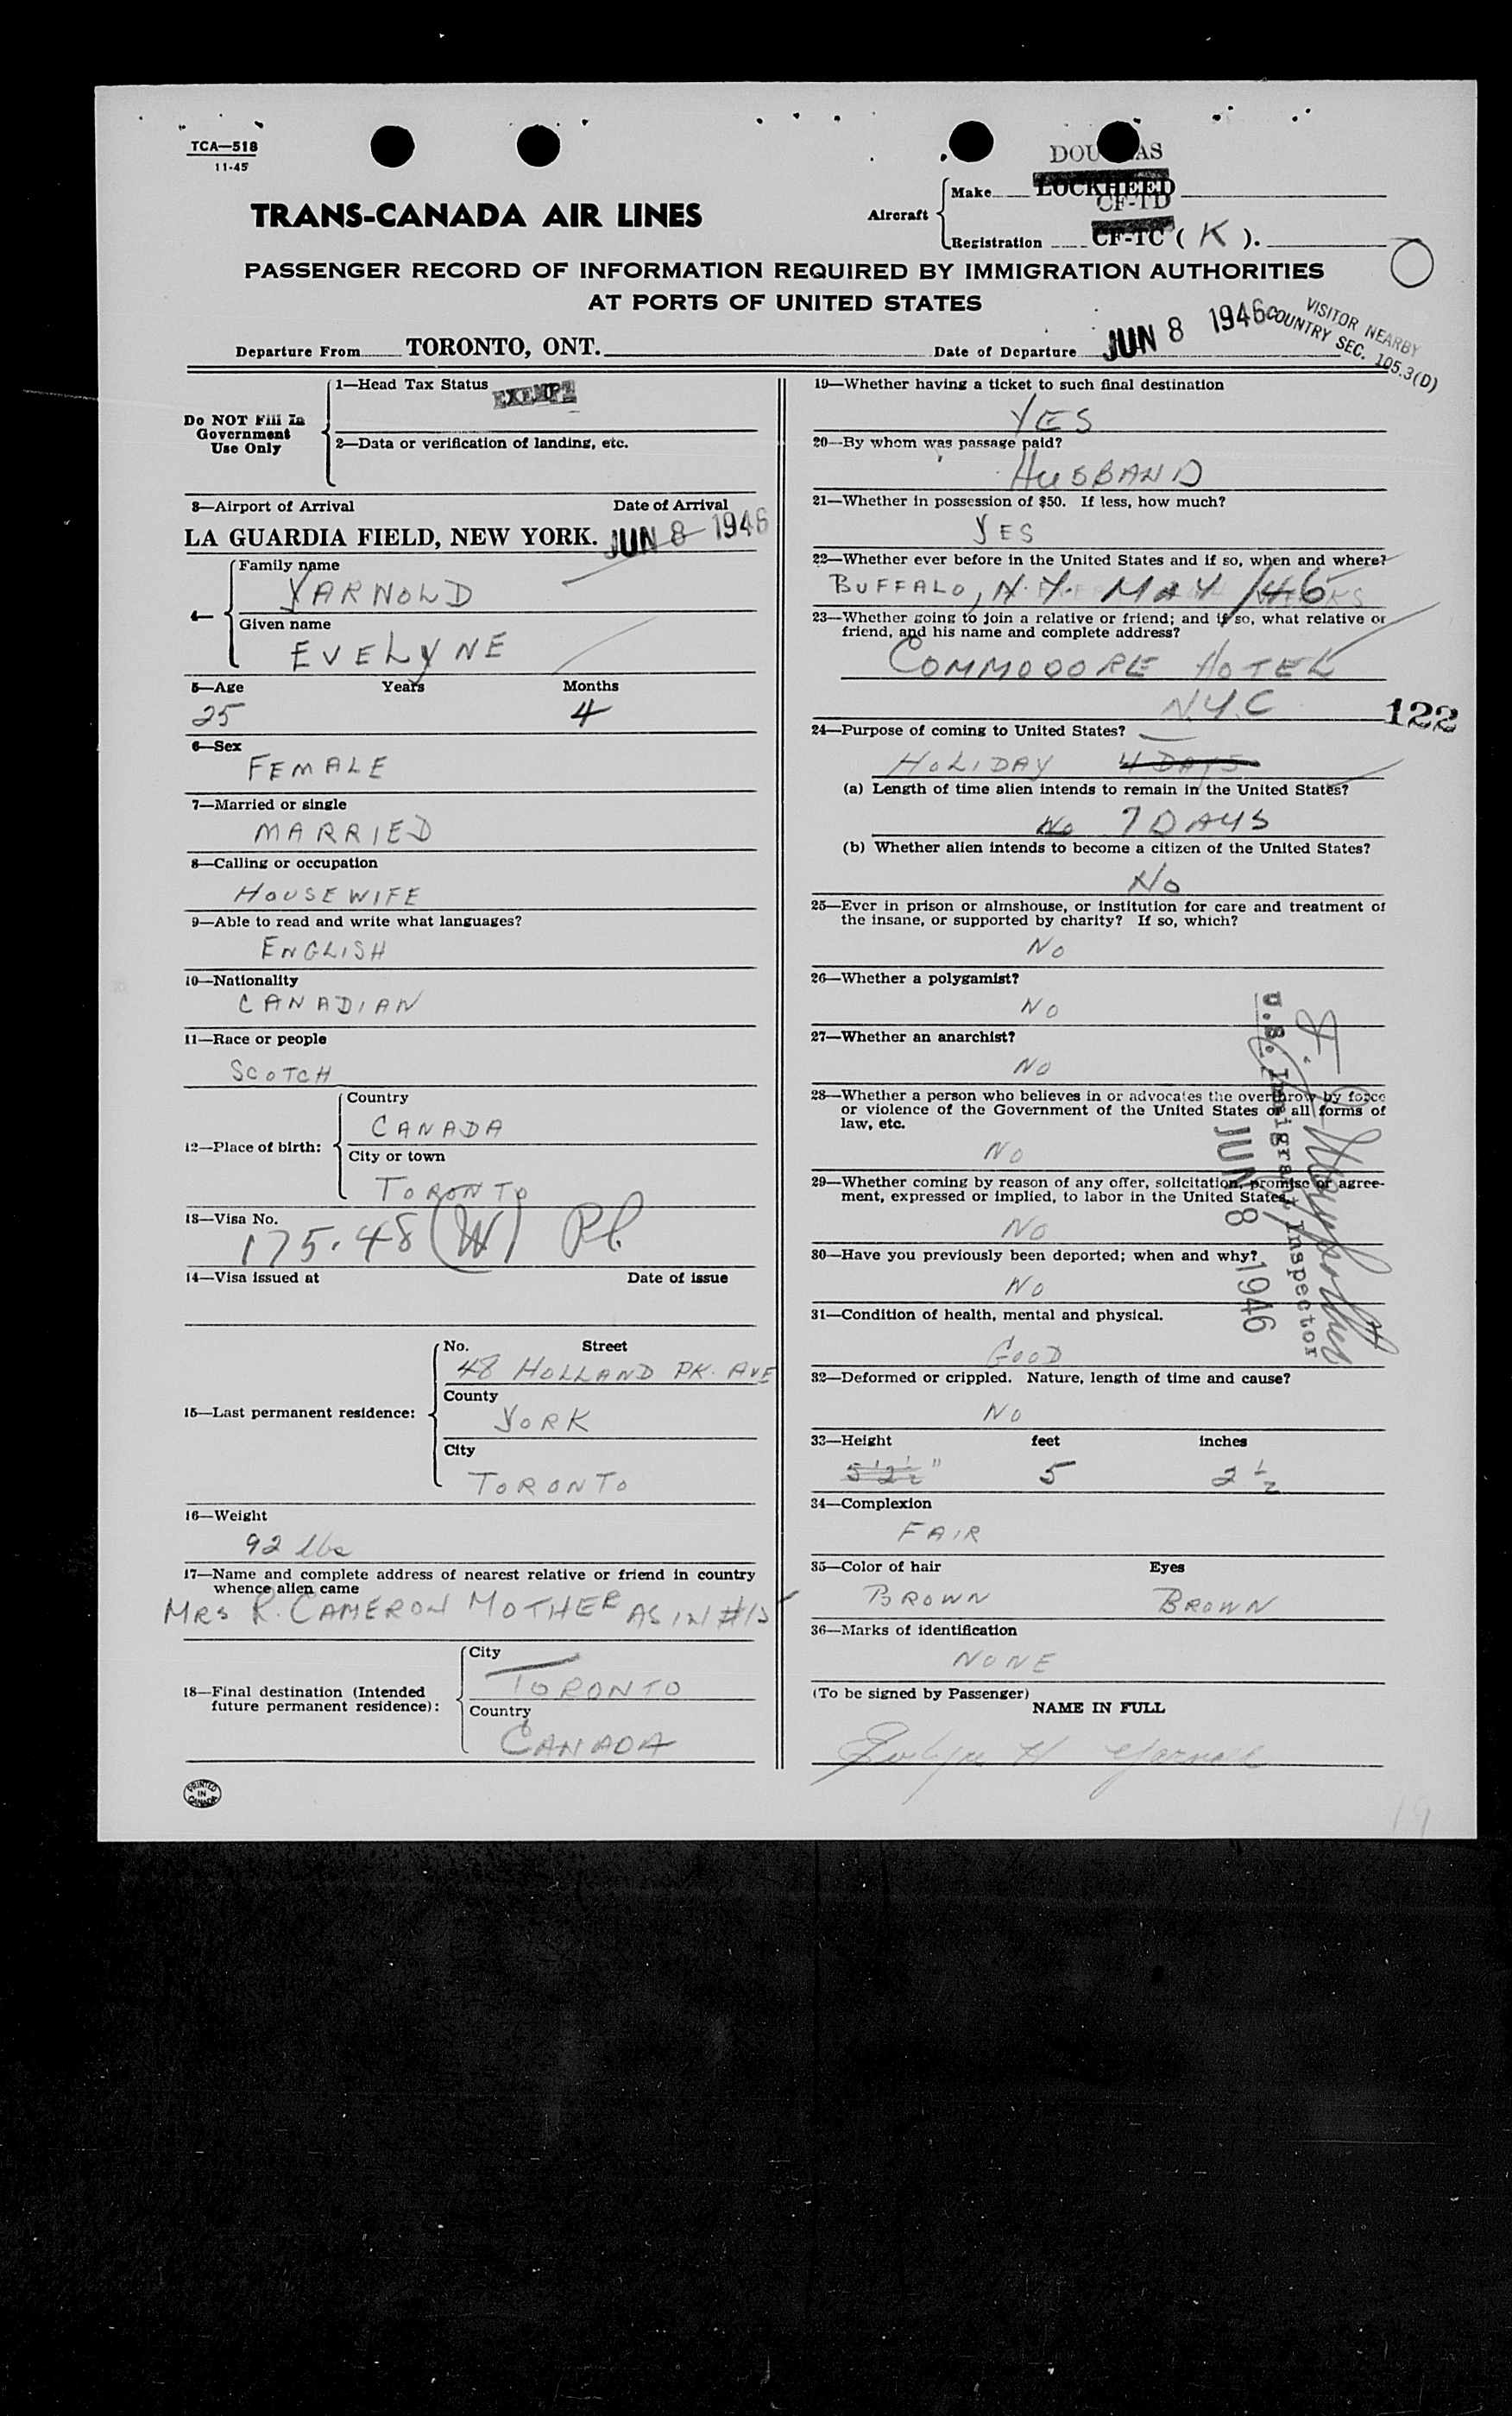 TCA—518
11-45
TRANS-CANADA AIR LINES
DOUGLAS
Aircraft
Make LOCKHEED
CF-TD
Registration CF-TC ( K ).
PASSENGER RECORD OF INFORMATION REQUIRED BY IMMIGRATION AUTHORITIES
AT PORTS OF UNITED STATES
Departure From TORONTO, ONT.
Date of Departure JUN 8 1946
VISITOR NEARBY
COUNTRY SEC. 105.3(D)
Do NOT Fill In
Government
Use Only
1—Head Tax Status
EXEMPT
2—Data or verification of landing, etc.
3—Airport of Arrival Date of Arrival
LA GUARDIA FIELD, NEW YORK. JUN 8- 1946
4—
Family name
YARNOLD
Given name
EVELYNE
5—Age Years Months
25 4
6—Sex
FEMALE
7—Married or single
MARRIED
8—Calling or occupation
HOUSEWIFE
9—Able to read and write what languages?
ENGLISH
10—Nationality
CANADIAN
11—Race or people
SCOTCH
12—Place of birth:
Country
CANADA
City or town
TORONTO
13—Visa No.
175.48 (W) Pl.
14—Visa issued at Date of issue
15—Last permanent residence:
No. Street
48 HOLLAND PK. AVE
County
YORK
City
TORONTO
16—Weight
92 lbs
17—Name and complete address of nearest relative or friend in country
whence alien came
MRS R. CAMERON MOTHER AS IN #15
18—Final destination (Intended
future permanent residence):
City
TORONTO
Country
CANADA
PRINTED
IN
CANADA
19—Whether having a ticket to such final destination
YES
20—By whom was passage paid?
HUSBAND
21—Whether in possession of $50. If less, how much?
YES
22—Whether ever before in the United States and if so, when and where?
BUFFALO, N.Y. MAY /46
23—Whether going to join a relative or friend; and if so, what relative or
friend, and his name and complete address?
COMMODORE HOTEL
N.Y.C
122
24—Purpose of coming to United States?
HOLIDAY 4 DAYS
(a) Length of time alien intends to remain in the United States?
No 7 DAYS
(b) Whether alien intends to become a citizen of the United States?
No
25—Ever in prison or almshouse, or institution for care and treatment of
the insane, or supported by charity? If so, which?
No
26—Whether a polygamist?
NO
27—Whether an anarchist?
NO
28—Whether a person who believes in or advocates the overthrow by force
or violence of the Government of the United States or all forms of
law, etc.
NO
29—Whether coming by reason of any offer, solicitation, promise or agree-
ment, expressed or implied, to labor in the United States,
NO
30—Have you previously been deported; when and why?
NO
31—Condition of health, mental and physical.
GOOD
U.S. Immigrant Inspector
JUN 8 1946
32—Deformed or crippled. Nature, length of time and cause?
NO
33—Height feet inches
5'2½" 5 2 ½
34—Complexion
FAIR
35—Color of hair Eyes
BROWN BROWN
36—Marks of identification
NONE
(To be signed by Passenger)
NAME IN FULL
Evelyn H Yarnold
19